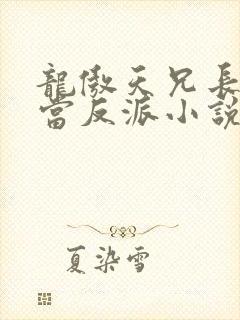 龍傲天兄長
當反派小說
夏染雪